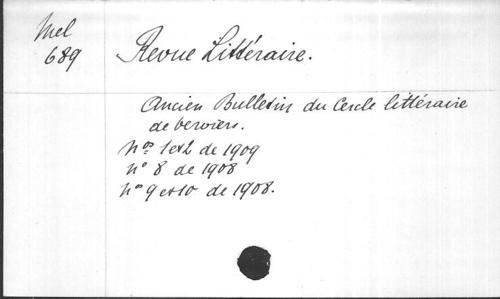 Mel
689
Revue Littéraire.
Ancien Bulletin du Cercle littéraire
de Verviers.
Nos 1 et 2 de 1909
No 8 de 1908
Nos 9 et 10 de 1908.